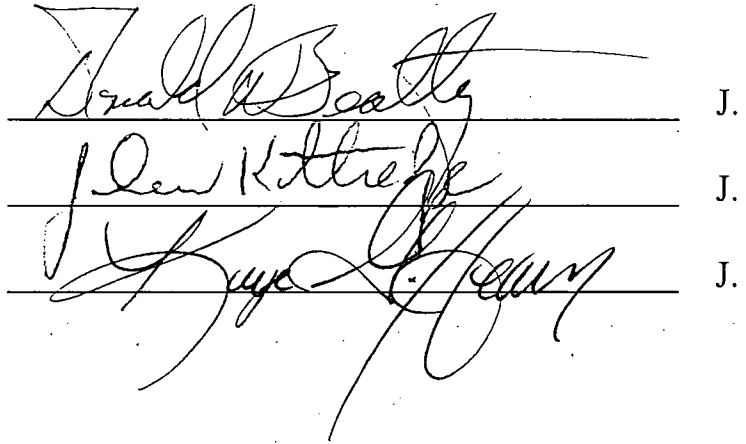 Donald W Beatty J.
John Kittredge J.
Kaye G. Hearn J.